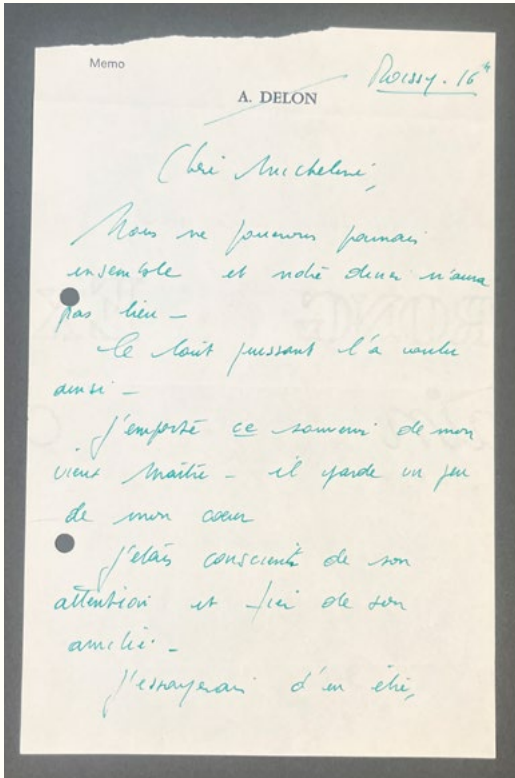 Memo
A. DELON
Roissy. 16h
Chère Micheline,
Nous ne jouerons jamais
ensemble et notre diner n'aura
pas lieu _
le tout puissant l'a voulu
ainsi _
J'emporte ce souvenir de mon
vieux Maître _ il garde un peu
de mon cœur
J'étais conscient de son
attention et fier de son
amitié. _
J'essayerai d'en être,